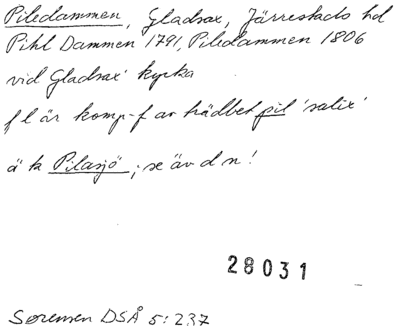 Piledammen, Gladsax, Järrestads hd
Pihl Dammen 1791, Piledammen 1806
vid Gladsax kyrka
f l är komp-f av trädbet pil 'salix'
ä k Pilasjö ; se äv d n!
28031
Sørensen DSÅ 5:237